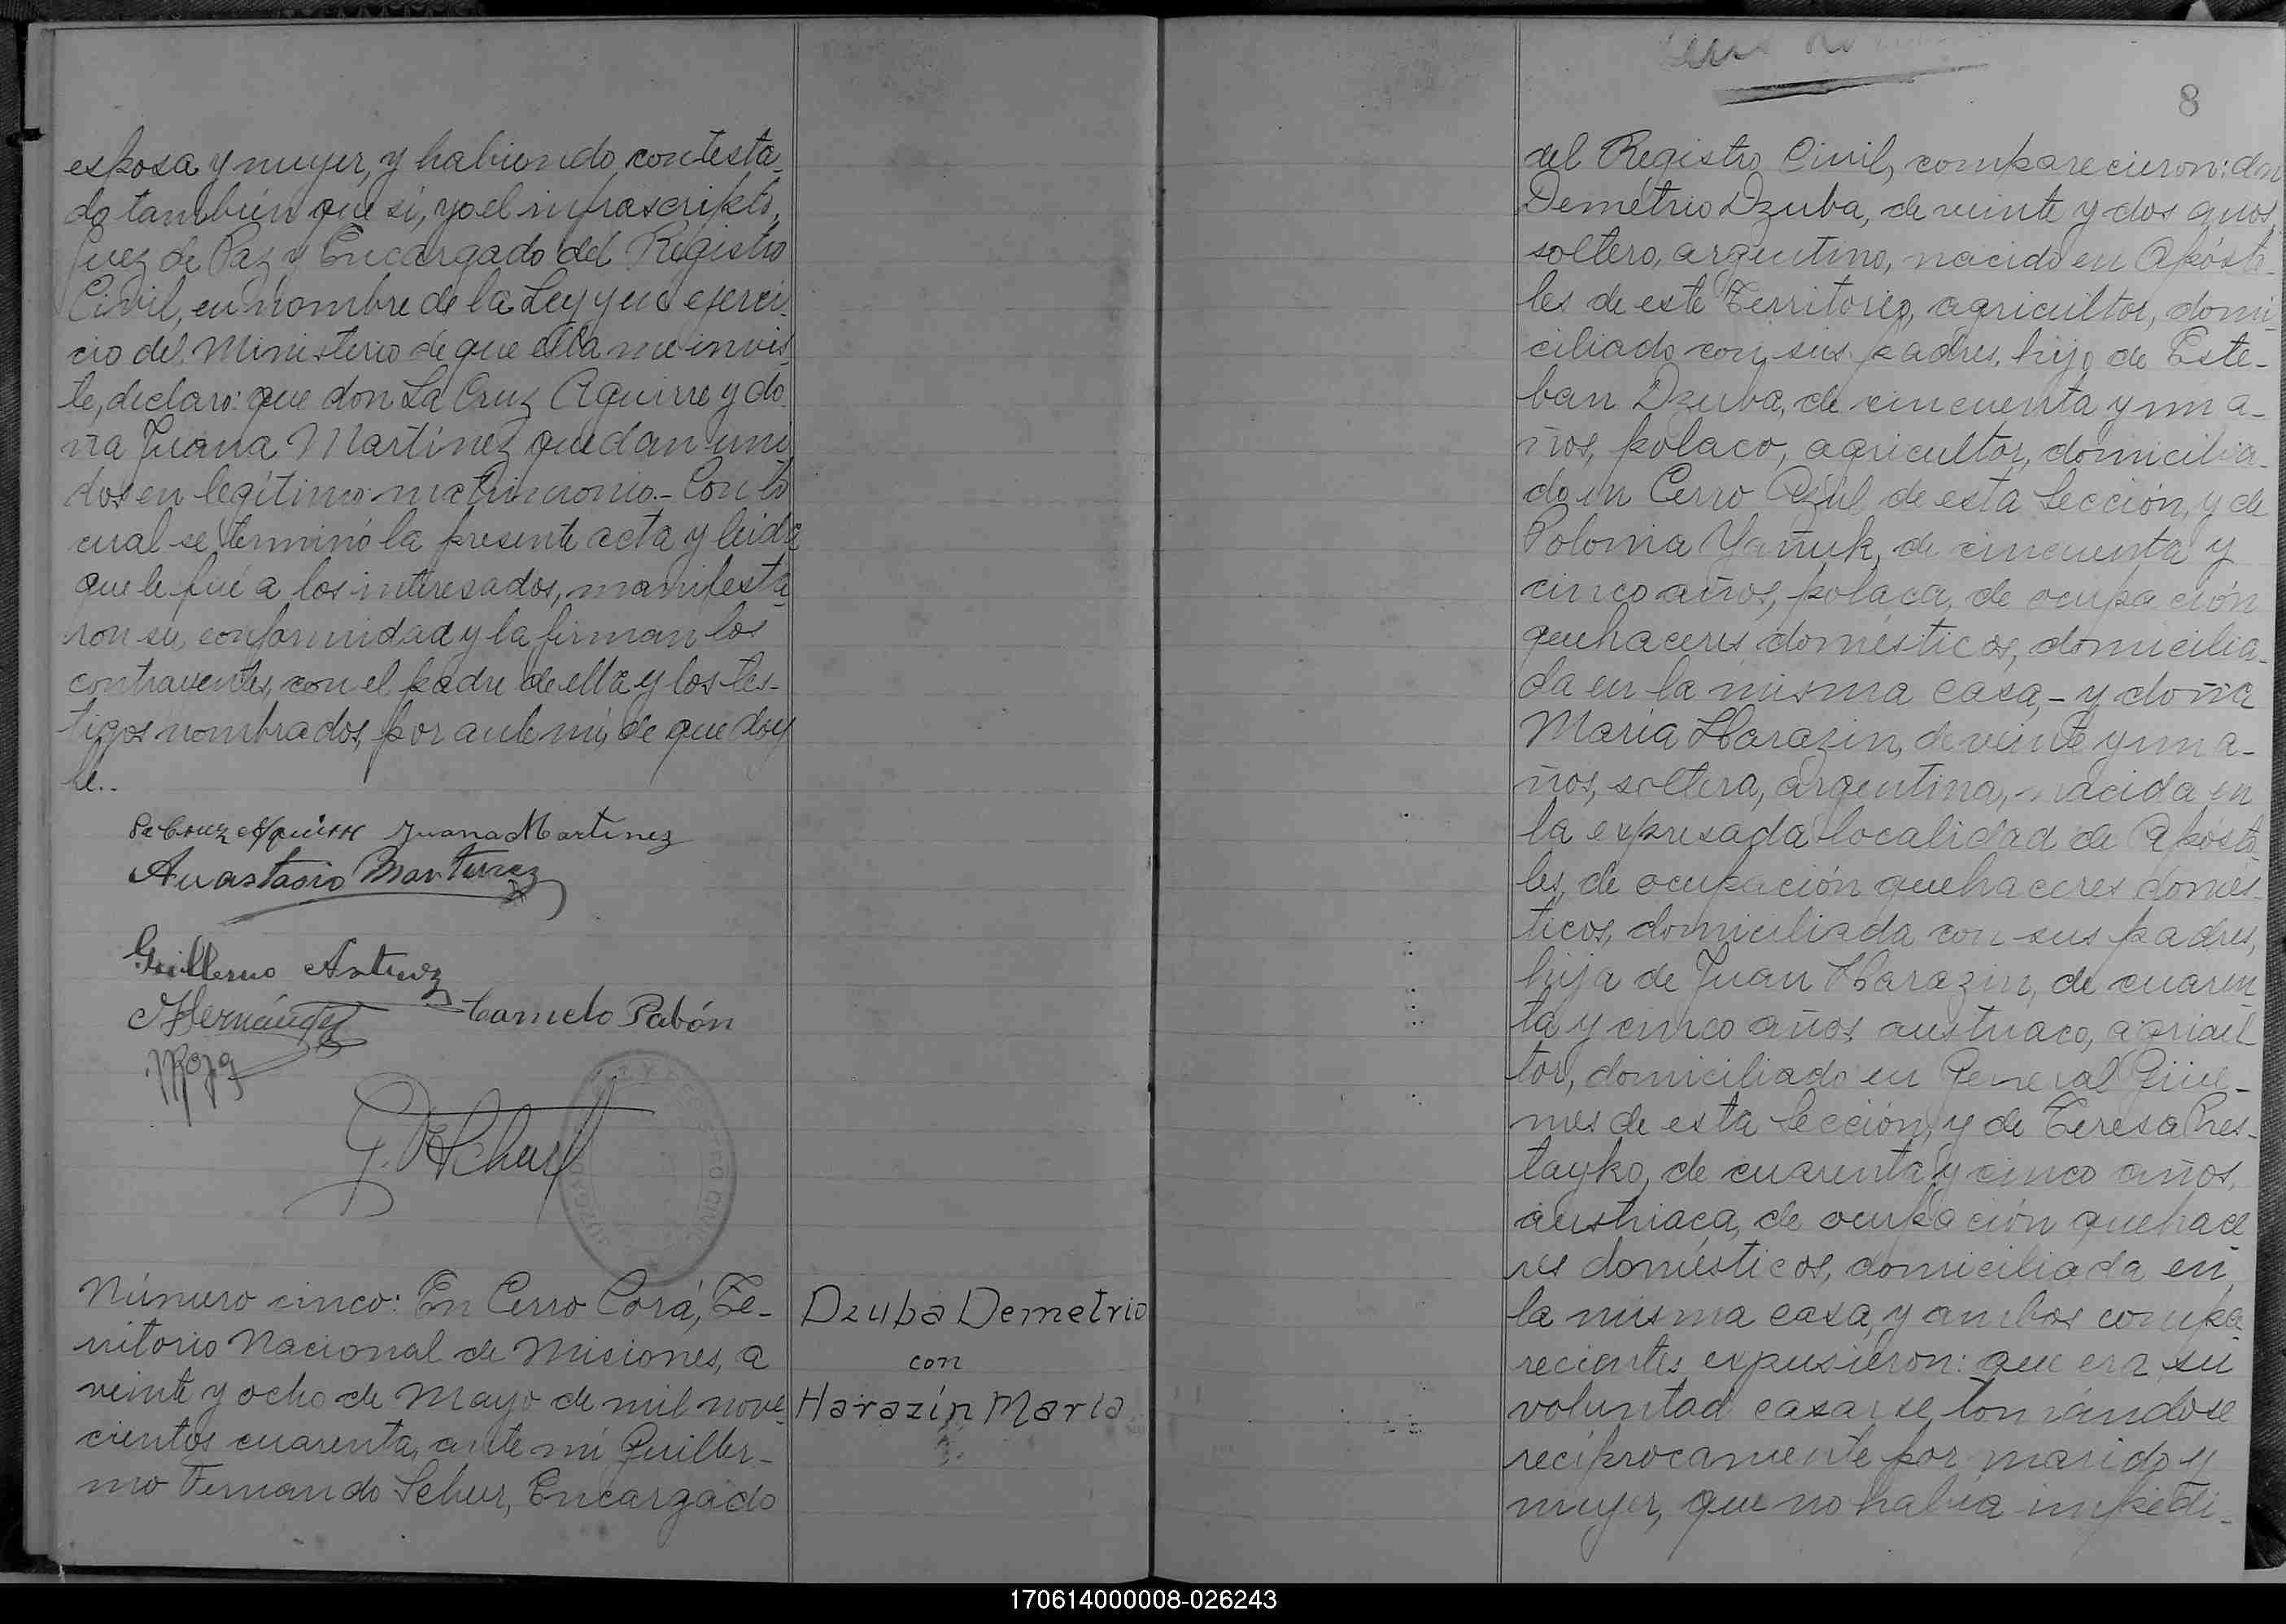 esposa y mujer, y habiendo contesta-
do también que sí, yo el infrascripto,
Juez de Paz y Encargado del Registro
Civil, en nombre de la Ley y en ejerci-
cio del Ministerio de que ella me invis-
te, declaro: que don La Cruz Aguirre y do-
ña Juana Martínez quedan uni-
dos en legítimo matrimonio.- Con lo
cual se terminó la presente acta y leída
que le fué a los interesados, manifesta-
ron su conformidad y la firman los
contrayentes, con el padre de ella y los tes-
tigos nombrados, por ante mí, de que doy
fé..
La Cruz Aguirre Juana Martinez
Anastasio Martinez
Guillermo
Hernández Carmelo Pabón
Número cinco: En Cerro Corá, Te-
rritorio Nacional de Misiones, a
veinte y ocho de Mayo de mil nove-
cientos cuarenta, ante mí Guiller-
mo Fernando Schur, Encargado
Dzuba Demetrio
con
Harazín María
8
del Registro Civil, comparecieron: don
Demetrio Dzuba, de veinte y dos años,
soltero, argentino, nacido en Apósto-
les de este Territorio, agricultor, domi-
ciliado con sus padres, hijo de Este-
ban Dzuba, de cincuenta y un a-
ños, polaco, agricultor, domicilia-
do en Cerro Azul de esta Sección, y de
Polonia Yañuk, de cincuenta y
cinco años, polaca, de ocupación
quehaceres domésticos, domicilia-
da en la misma casa,- y doña
María Harazin, de veinte y un a-
ños, soltera, argentina, nacida en
la expresada localidad de Apósto-
les, de ocupación quehaceres domés-
ticos, domiciliada con sus padres,
hija de Juan Harazin, de cuaren-
ta y cinco años, austriaco, agricul-
tor, domiciliado en General Güe-
mes de esta Sección, y de Teresa Pres-
tayko, de cuarenta y cinco años,
austriaca, de ocupación quehace-
res domésticos, domiciliada en
la misma casa, y ambos compa-
recientes expusieron: que era su
voluntad casarse tomándose
recíprocamente por marido y
mujer, que no había impedi-
170614000008-026243